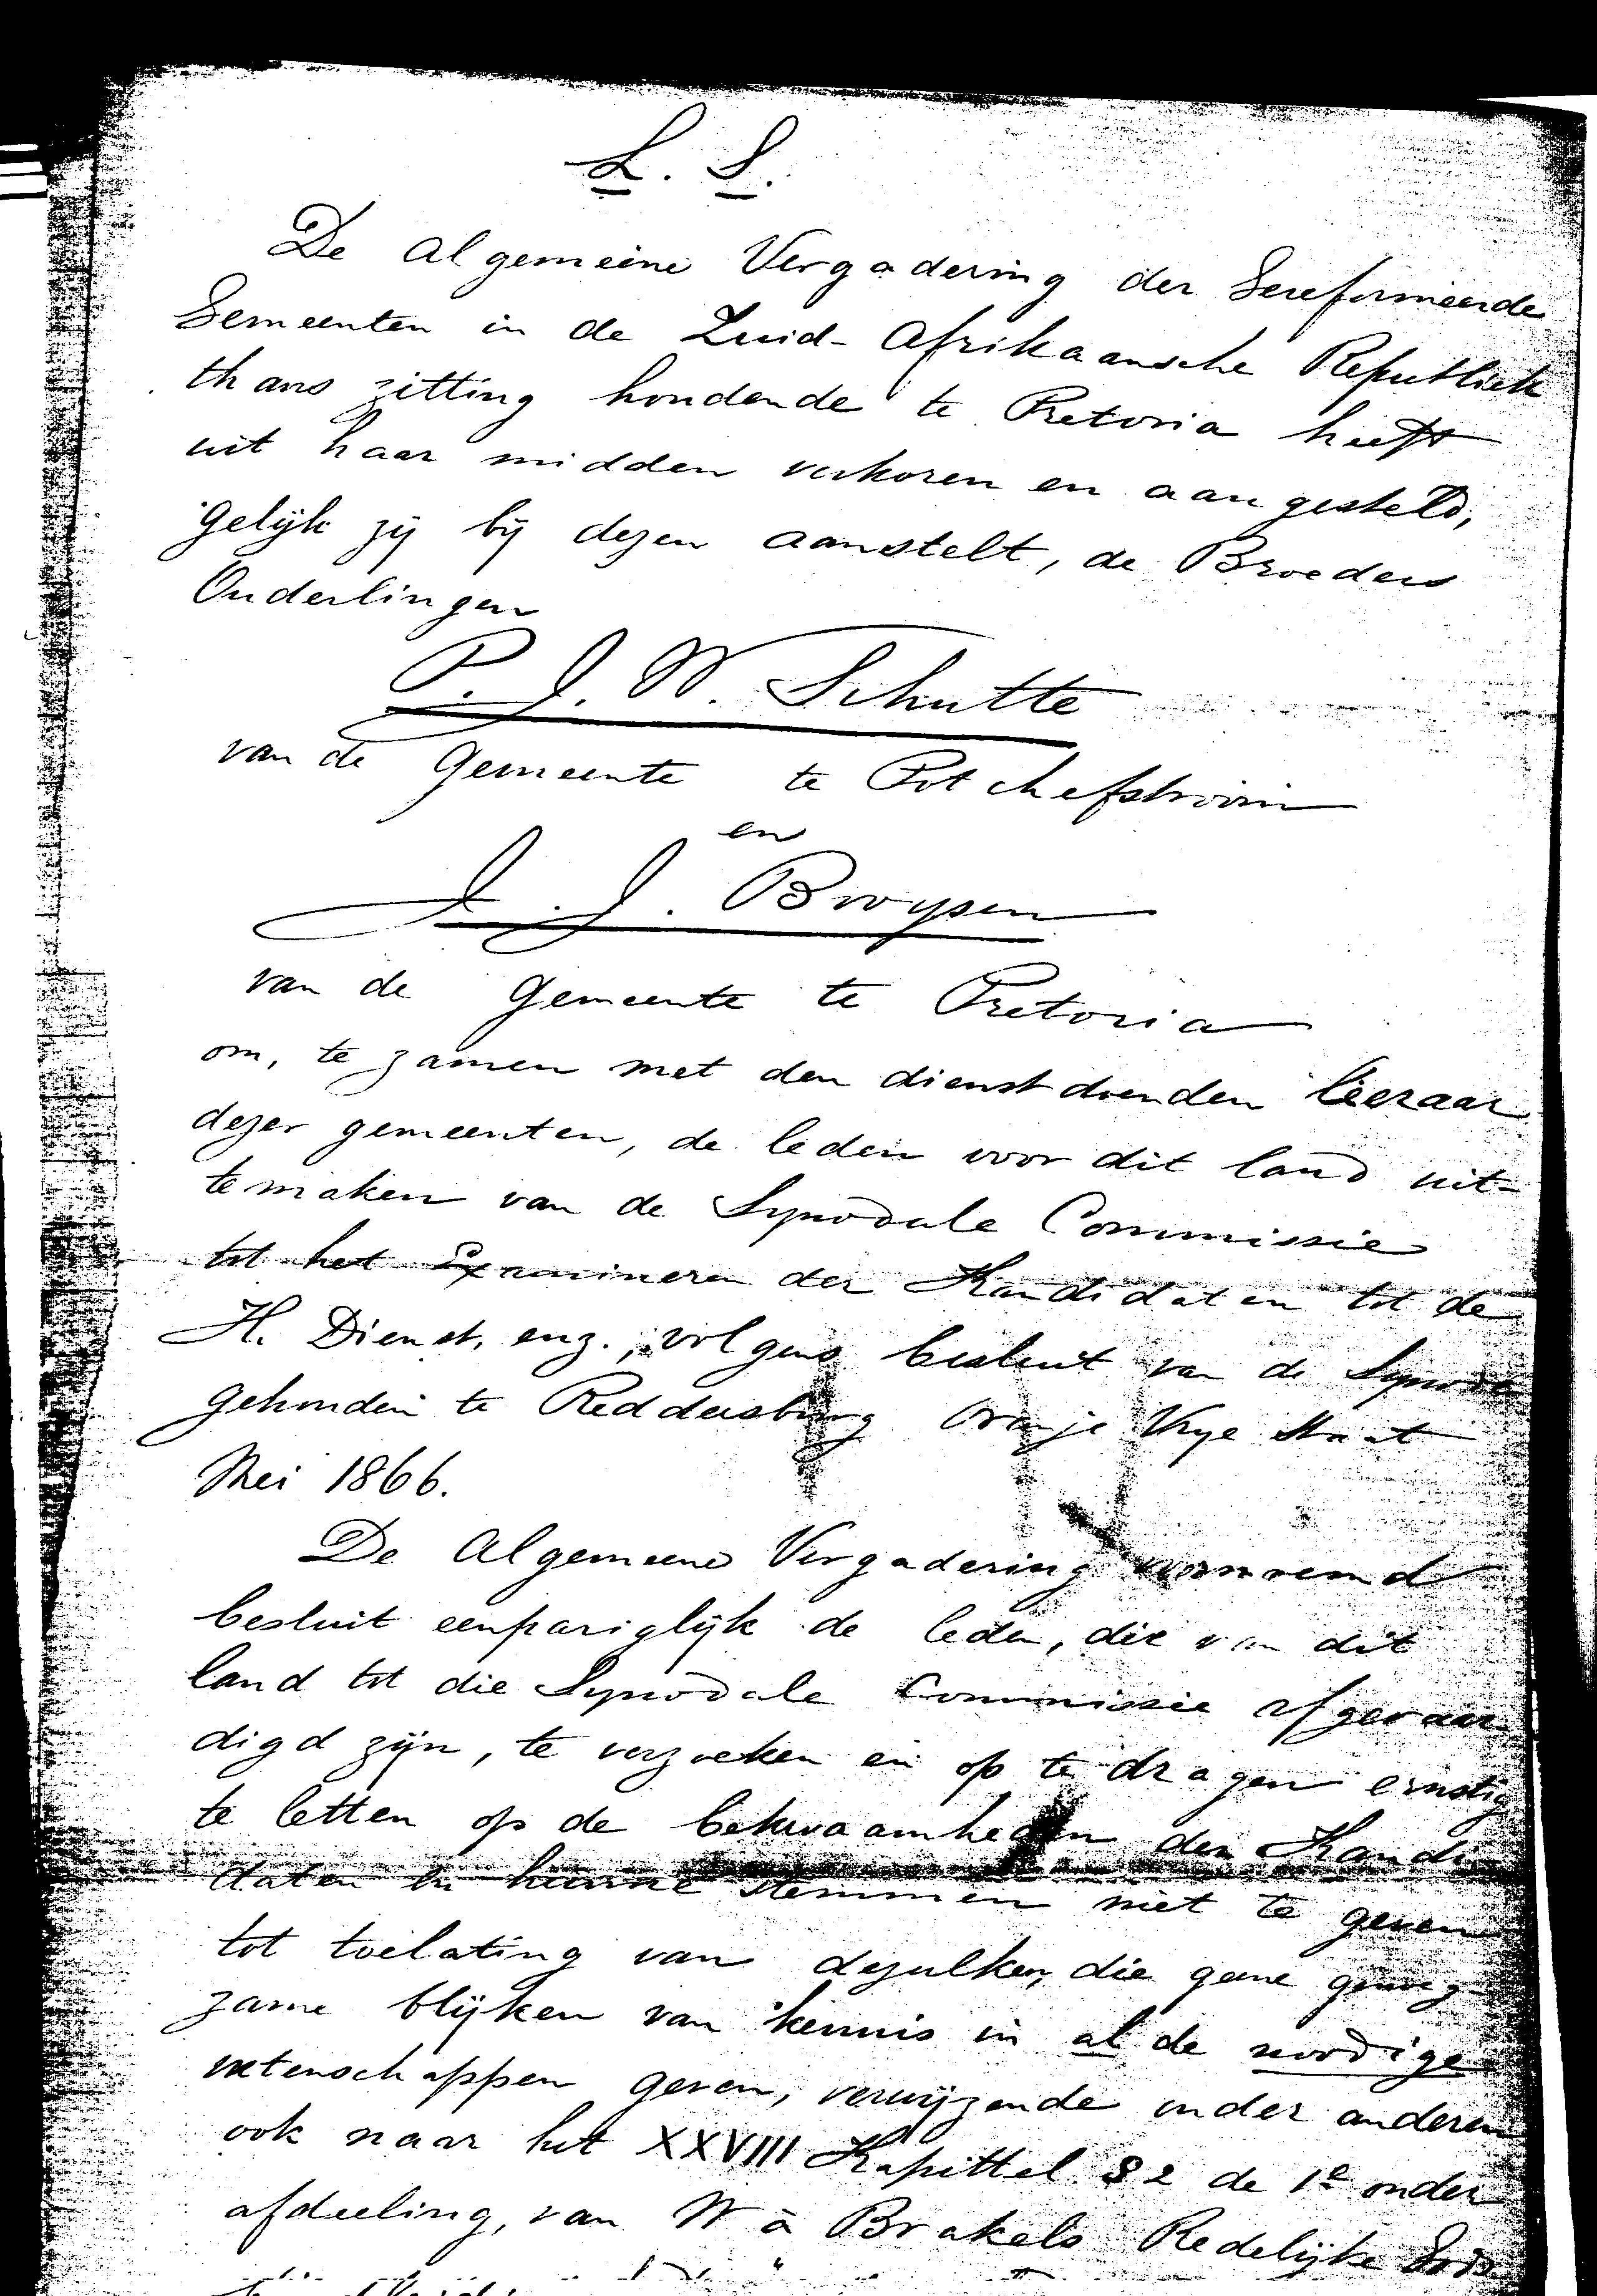 L. S.
De Algemeene Vergadering der Gereformeerde
Gemeenten in de Zuid-Afrikaansche Republiek
thans zitting houdende te Pretoria heeft
uit haar midden verkoren en aangesteld,
gelijk zij bij dezen aanstelt, de Broeders
Ouderlingen
P. J. W. Schutte
van de Gemeente te Potchefstroom
en
J. J. Broysen
van de Gemeente te Pretoria
om, te zamen met den dienstdoenden leeraar
dezer gemeenten, de leden voor dit land uit-
temaken van de Synodale Commissie
tot het Examineren der Kandidaten tot de
H. Dienst, enz., volgens besluit van de Synode
gehouden te Reddersburg Oranje Vrye Staat
Mei 1866.
De Algemeene Vergadering voornoemd
besluit eenpariglijk de leden, die van dit
land tot die Synodale Commissie afgevaar
digd zijn, te verzoeken en op te dragen ernstig
te letten op de bekwaamheden der Kandi
daten en hunne stemmen niet te geven
tot toelating van dezulken, die geene genoeg
zame blijken van kennis in al de noodige
wetenschappen geven, verwijzende onder anderen
ook naar het XXVIII Kapittel § 2 de 1e onder
afdeeling, van W à Brakels Redelijke